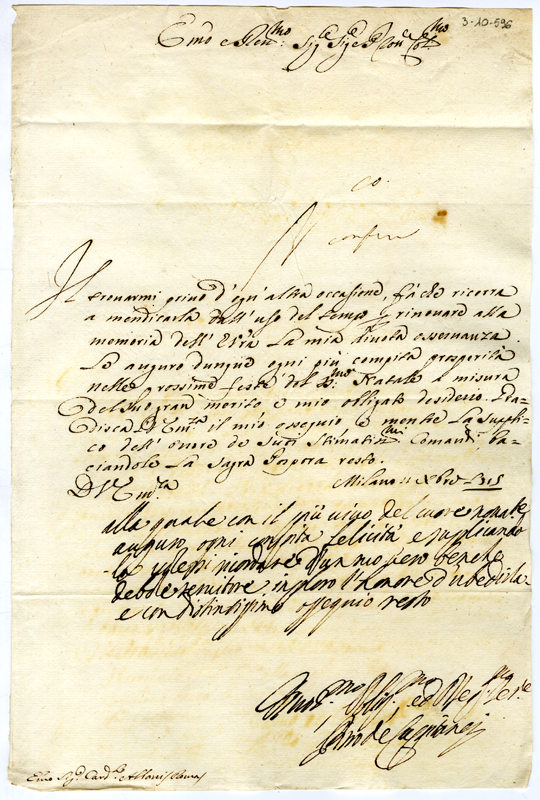 3-10-596
Em̃o e Reu.mo Sig.re Sig.re P̃ron Col.mo
co.
confer
Il trouarmi priuo d'ogn'altra occasione, fà che ricorra
a mendicarla dall'uso del tempo p rinouare alla
memoria dell'E.V.ra La mia diuota osseruanza.
Le auguro dunque ogni più compita prosperità
nelle prossime feste del S.mo Natale a misura
del Suo gran merito, e mio obligato desiderio. Gra-
disca L'Em.za il mio ossequio, e mentre La suppli-
co dell'onore de Suoi Stimatis.mi Comandi, ba-
ciandole La Sagra Porpora resto.
D V Em.za
Milano 11 Xbre 1715
alla quale con il più uiuo del cuore
auguro ogni compita felicità e suplicando
la ricordare d'un suo uero benche
debole seruitore, inploro l'honore d'ubedirla
e con distintissimo ossequio resto
ed Ser.re
Em̃o Sig.r Card.le Albani Roma